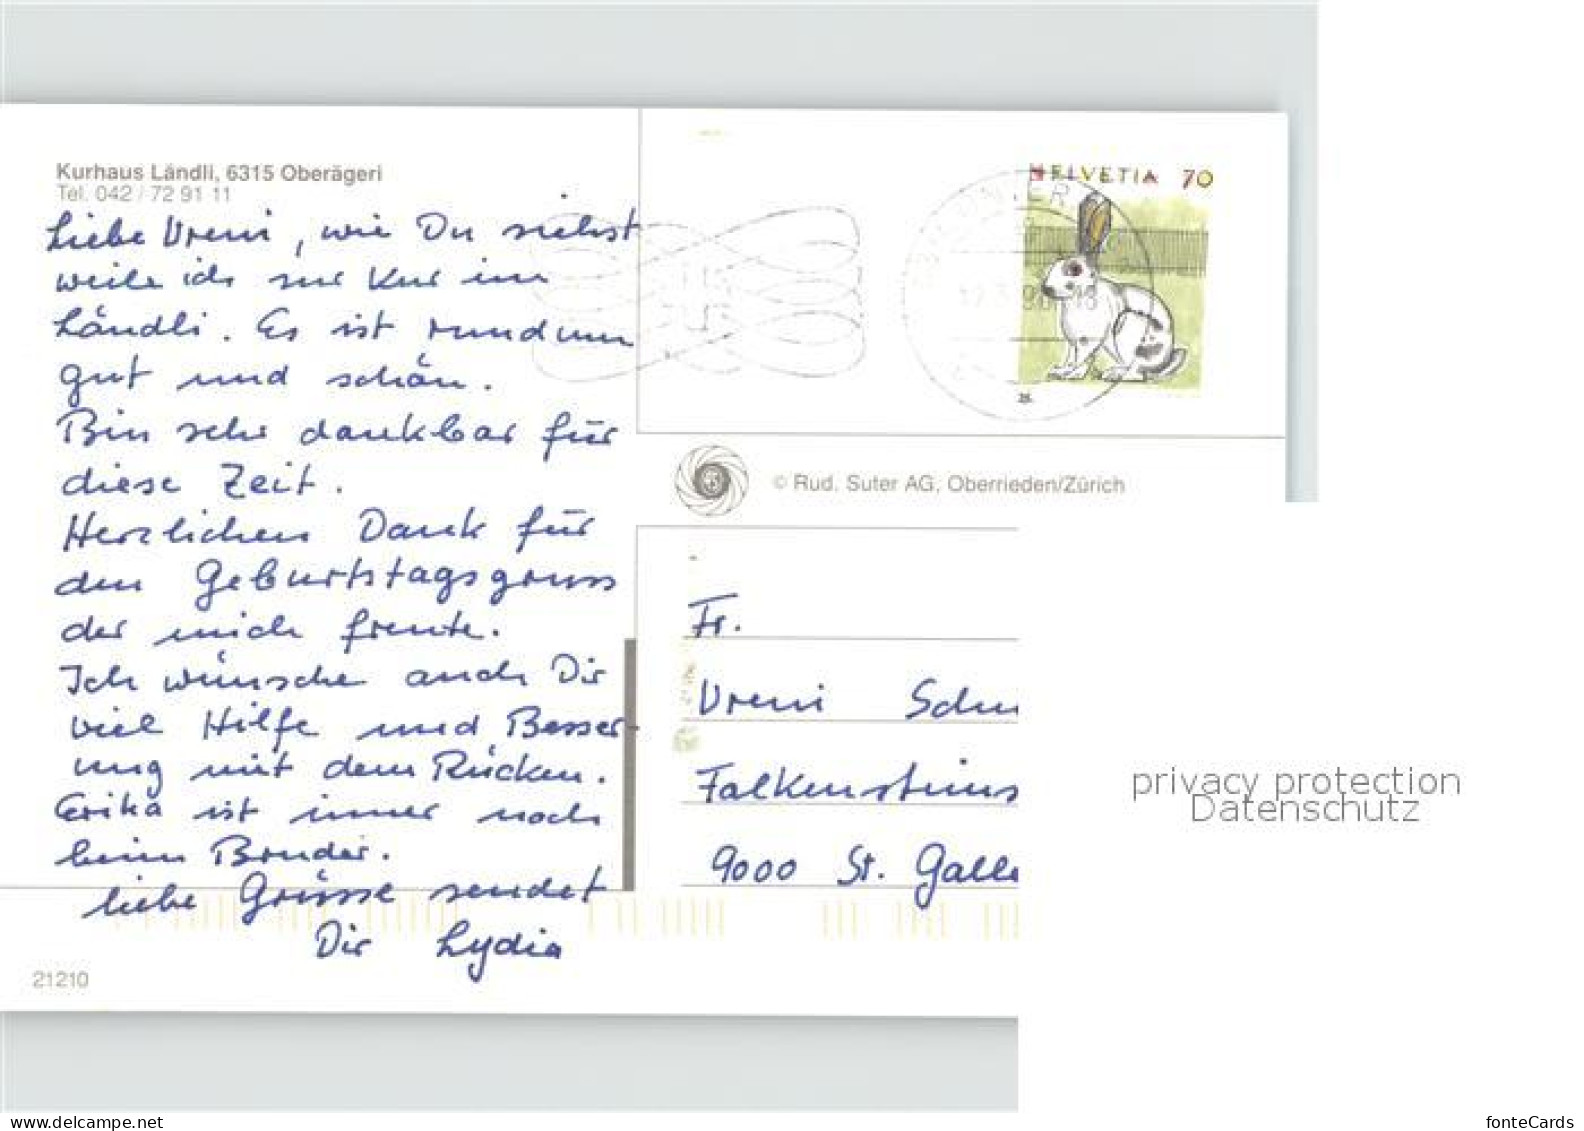 Kurhaus Ländli, 6315 Oberägeri
Tel. 042 / 72 91 11
Liebe Vreni, wie Du siehst
weile ich zur Kur im
Ländli. Es ist rundum
gut und schön.
Bin sehr dankbar für
diese Zeit.
Herzlichen Dank für
den Geburtstagsgruss
der mich freute.
Ich wünsche auch Dir
viel Hilfe und Besser-
ung mit dem Rücken.
Erika ist immer noch
beim Bruder.
Liebe Grüsse sendet
Dir Lydia
21210
HELVETIA 70
© Rud. Suter AG, Oberrieden/Zürich
Fr.
Vreni Sch
Falkensteins
9000 St. Galle
privacy protection
Datenschutz
www.delcampe.net
fonteCards